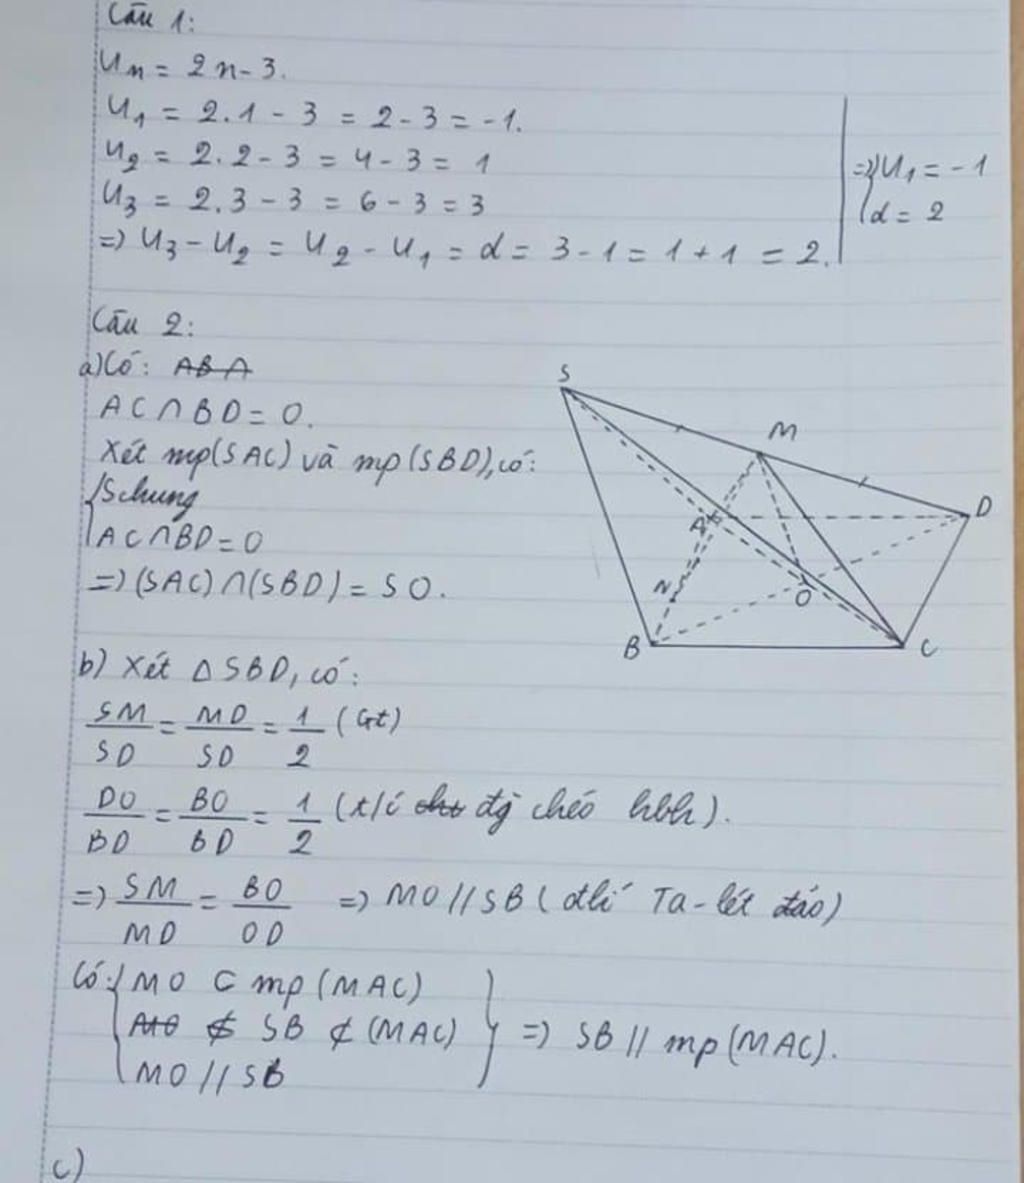 Câu 1:
Un = 2n - 3.
U1 = 2.1 - 3 = 2 - 3 = -1.
U2 = 2.2 - 3 = 4 - 3 = 1
U3 = 2.3 - 3 = 6 - 3 = 3
=> U3 - U2 = U2 - U1 = d = 3 - 1 = 1 + 1 = 2.
=> { U1 = -1
d = 2
Câu 2:
a) Có: ABA
AC ∩ BD = O.
Xét mp(SAC) và mp(SBD), có:
{ S chung
AC ∩ BD = O
=> (SAC) ∩ (SBD) = SO.
S
M
D
A
N
O
B
C
b) Xét Δ SBD, có:
SM/SD = MD/SD = 1/2 (Gt)
DO/BD = BO/BD = 1/2 (t/c đg chéo hbh).
=> SM/MD = BO/OD => MO // SB (đlí Ta-lét đảo)
Có: { MO ⊂ mp(MAC)
SB ⊄ (MAC) } => SB // mp(MAC).
MO // SB
c)